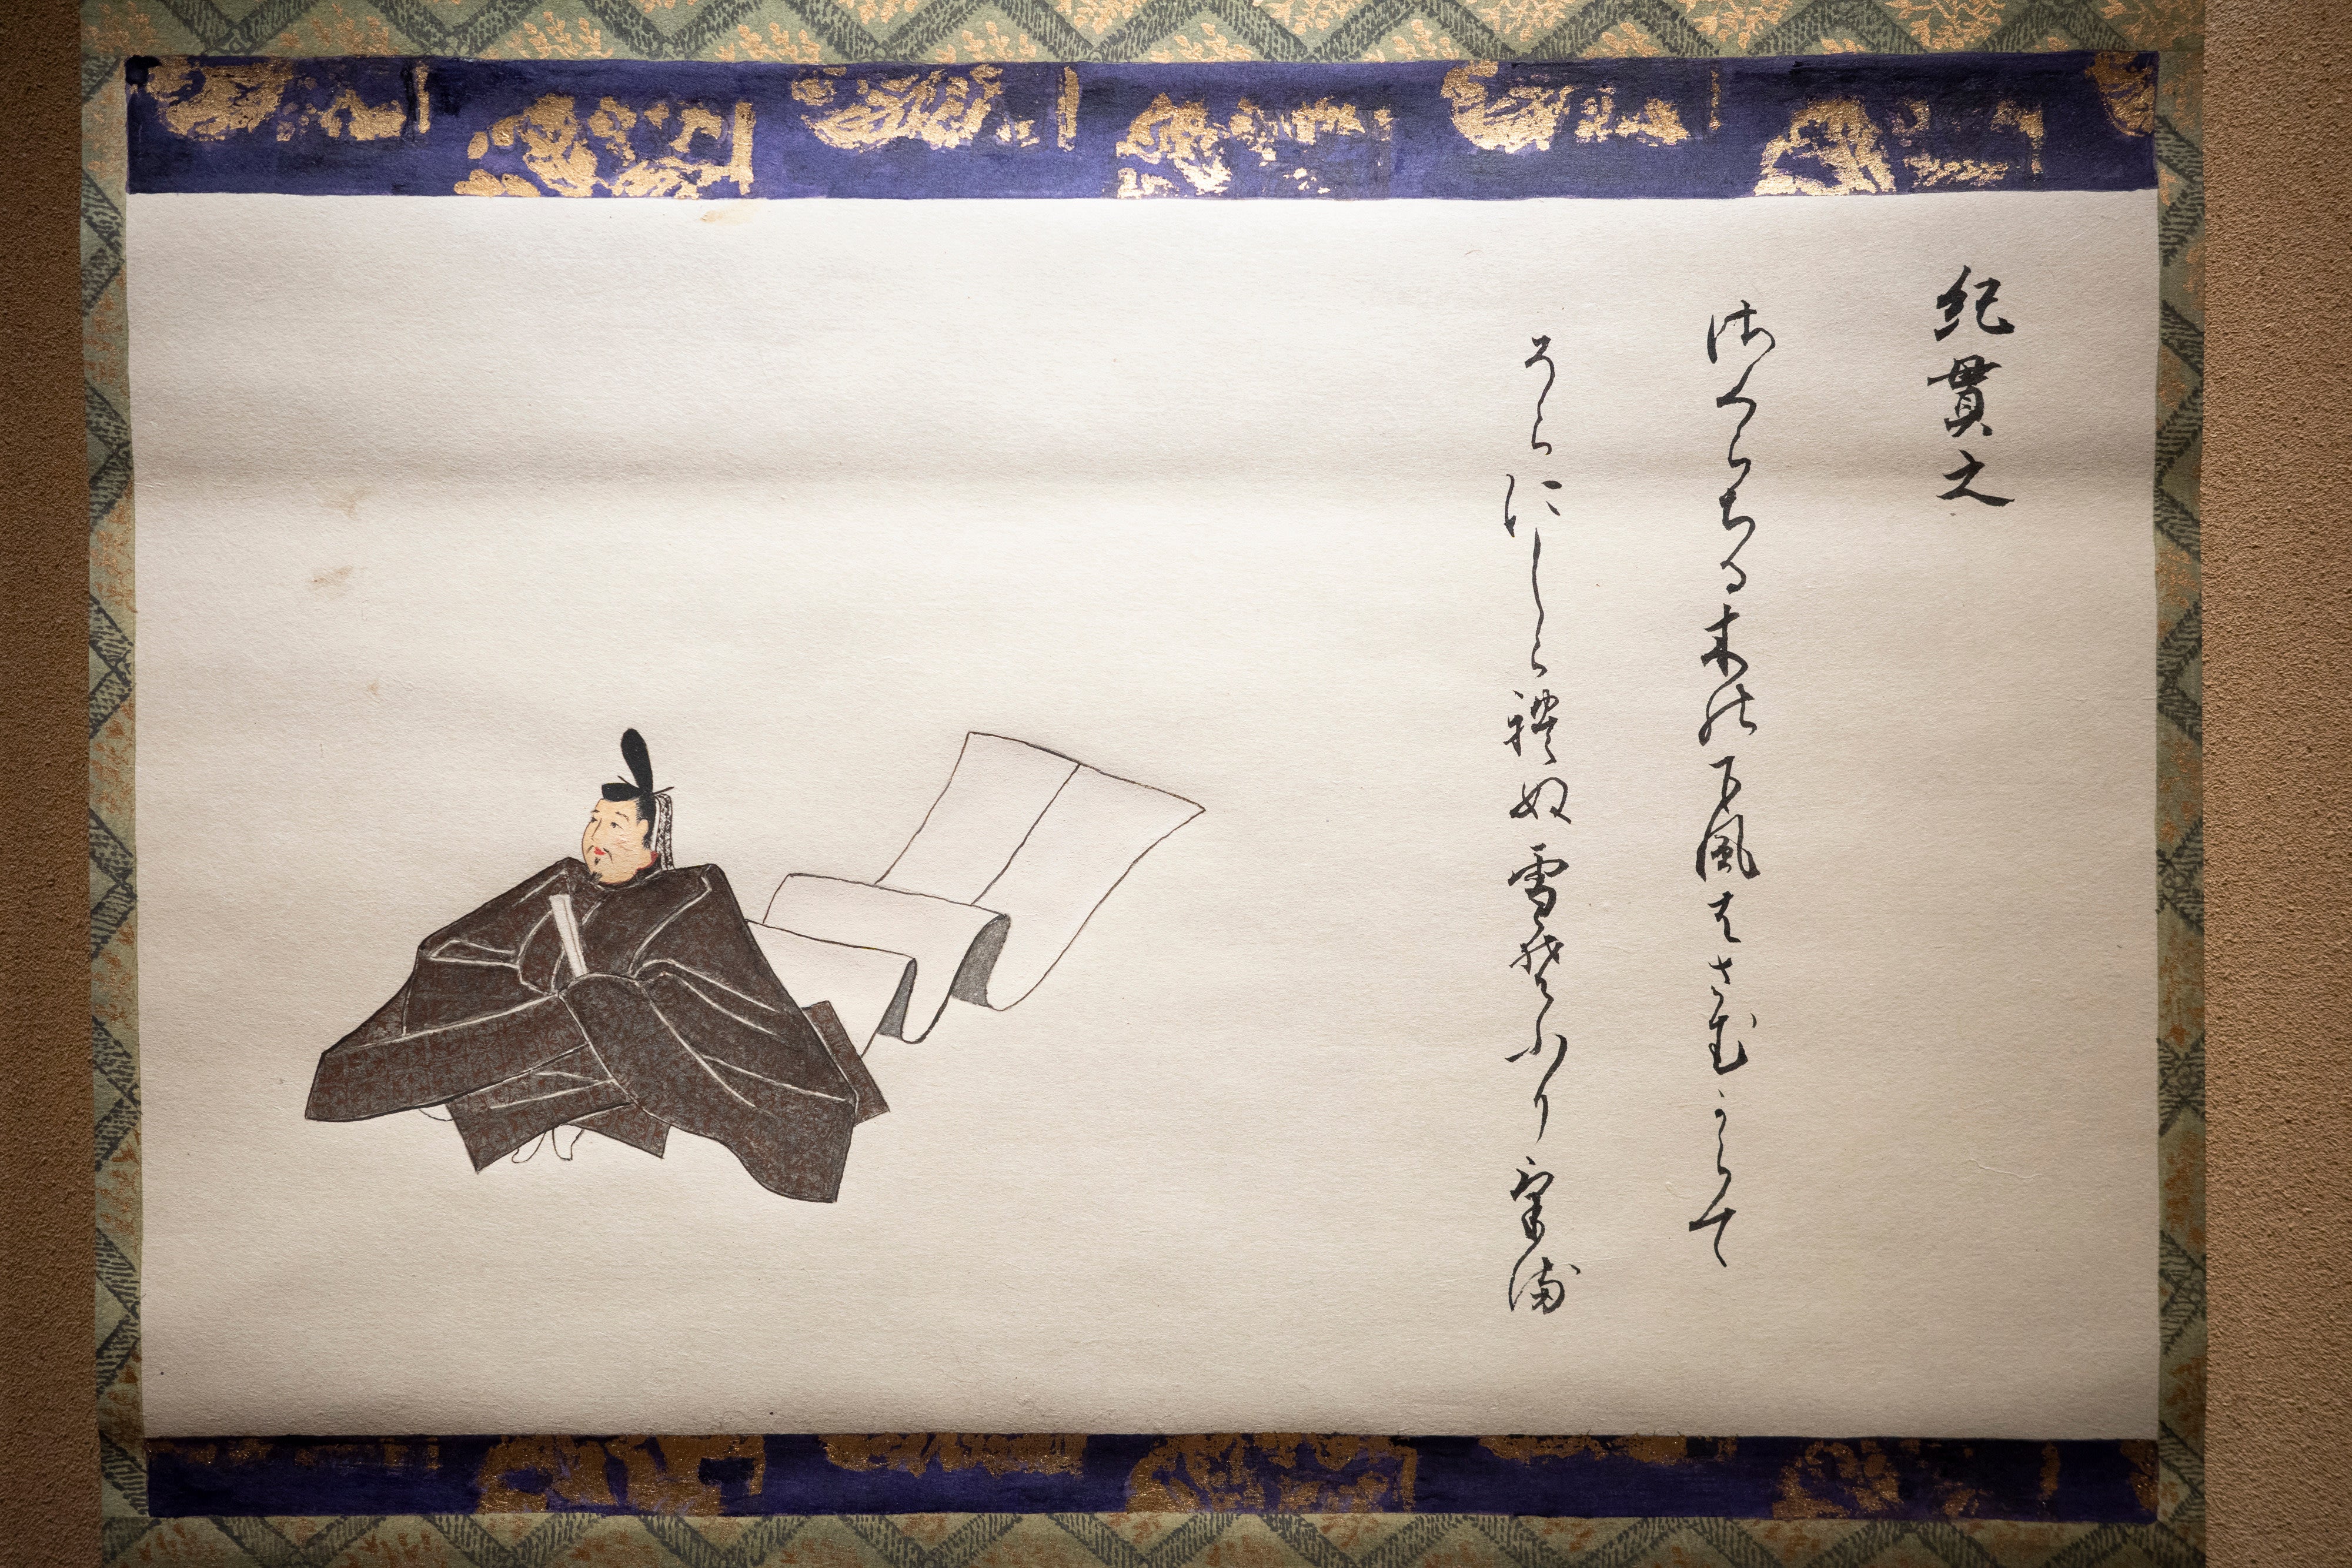 紀貫之
さくらちる木の下風はさむからて
そらにしられぬ雪そふりける